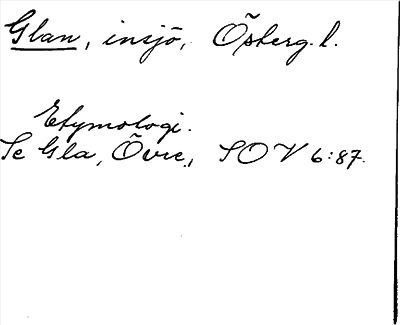 Glan, insjö, Österg. l.
Etymologi.
Se Gla, Övre, SOV 6:87.